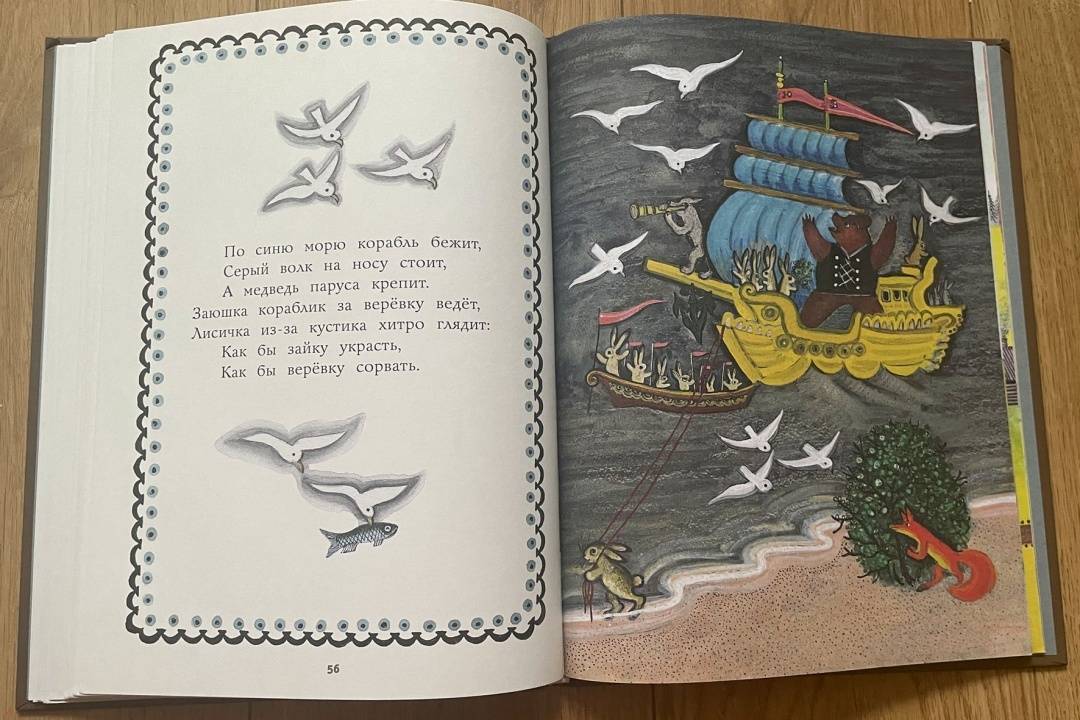 По синю морю корабль бежит,
Серый волк на носу стоит,
А медведь паруса крепит.
Заюшка кораблик за верёвку ведёт,
Лисичка из-за кустика хитро глядит:
Как бы зайку украсть,
Как бы верёвку сорвать.
56